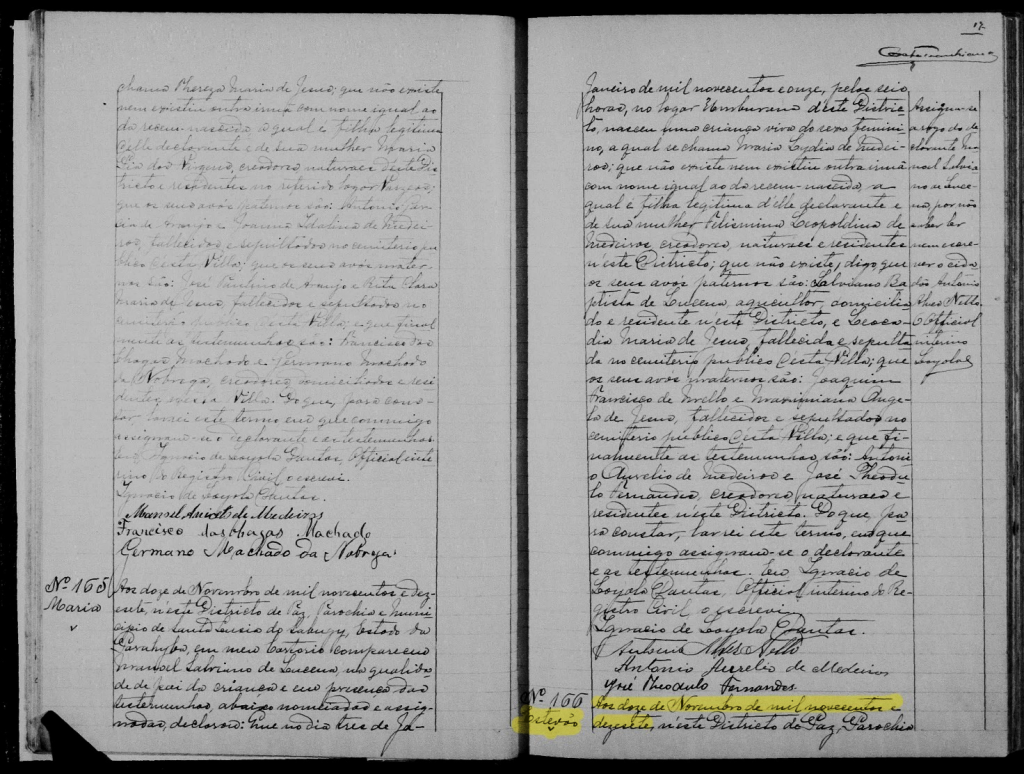 chama Thereza Maria de Jesus; que não existe
nem existiu outra irmã com nome igual ao
da recem-nascida a qual é filha legitima
d'elle declarante e de sua mulher Maria
creadores, naturaes d'este Dis-
tricto e residentes no referido logar
que os seus avós paternos são: Antonio
de Araujo e Joanna Idalina de Medei-
ros, fallecidos e sepultados no cemiterio pu-
blico d'esta Villa; que os seus avós mater-
nos são: José Paulino de Araujo e Rita Clara
Maria de Jesus, fallecidos e sepultados no
cemiterio publico d'esta Villa, e que final-
mente as testemunhas são: Francisco das
Chagas Machado e Germano Machado
da Nobrega, creadores, domiciliados e resi-
dentes n'esta Villa. Do que, para cons-
tar, lavrei este termo em que commigo
assignam-se o declarante e as testemunhas.
Eu, Ignacio de Loyola Dantas, Official inte-
rino do Registro Civil, o escrevi.
Ignacio de Loyola Dantas.
Manoel de Medeiros
Francisco das Chagas Machado
Germano Machado da Nobrega.
Nº 165
Maria
Aos doze de Novembro de mil novesentos e dez-
esete, n'este Districto de Paz, Parochia e Muni-
cipio de Santa Luzia do Sabugy, Estado da
Parahyba, em meu Cartorio compareceu
Manoel Salviano de Lucena, na qualida-
de de pai da criança e em presença das
testemunhas, abaixo nomeadas e assig-
nadas, declarou: Que no dia tres de Ja-
17
Janeiro de mil novesentos e onze, pelas seis
horas, no logar Umburana d'este Distric-
to, nasceu uma criança viva do sexo femini-
no, a qual se chama Maria Lydia de Medei-
ros; que não existe nem existiu outra irmã
com nome igual ao da recem-nascida, a
qual é filha legitima d'elle declarante e
de sua mulher Felismina Leopoldina de
Medeiros creadores, naturaes e residentes
n'este Districto; que não existe, digo, que
os seus avos paternos são: Salviano Ba-
ptista de Lucena, agricultor, domicilia-
do e residente n'este Districto, e Leoca-
dia Maria de Jesus, fallecida e sepulta-
da no cemiterio publico d'esta Villa; que
os seus avos maternos são: Joaquim
Francisco de Mello e Maximiana Ange-
la de Jesus, fallecidos e sepultados no
cemiterio publico d'esta Villa; e que fi-
nalmente as testemunhas, são: Antoni-
o Aurelio de Medeiros e José Theodu-
lo Fernandes, creadores, naturaes e
residentes n'este Districto. Do que, pa-
ra constar, lavrei este termo, em que
commigo assignam-se o declarante
e as testemunhas. Eu Ignacio de
Loyola Dantas, Official interino do Re-
gistro Civil, o escrevi
Ignacio de Loyola Dantas.
Antonio Alves Nello
Antonio Aurelio de Medeiros
José Theodulo Fernandes.
Assigna-se
a rogo do de-
clarante Ma-
noel Salvia-
no de Luce-
na, por não
saber ler
nem escre-
ver o cida-
dão Antonio
Alves Nello.
O Official
interino
Loyola
Nº 166
Estevão
Aos doze de Novembro de mil novesentos e
dezesete, n'este Districto de Paz, Parochia